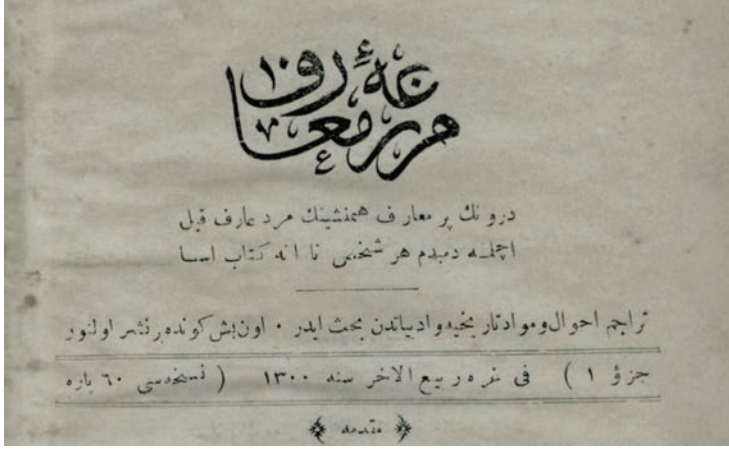 مزرعهٔ معارف
درونك پر معارف همنشینك مرد عارف قیل
اچلمه دمبدم هر شخص نا انه كتاب اسا
تراجم احوال و مواد تاریخیه و ادبیاتدن بحث ایدر · اون بش كونده بر نشر اولنور
جزؤ ١ ) فی غره ربیع الاخر سنه ١٣٠٠ ( نسخه‌سی ٦٠ پاره
مقدمه